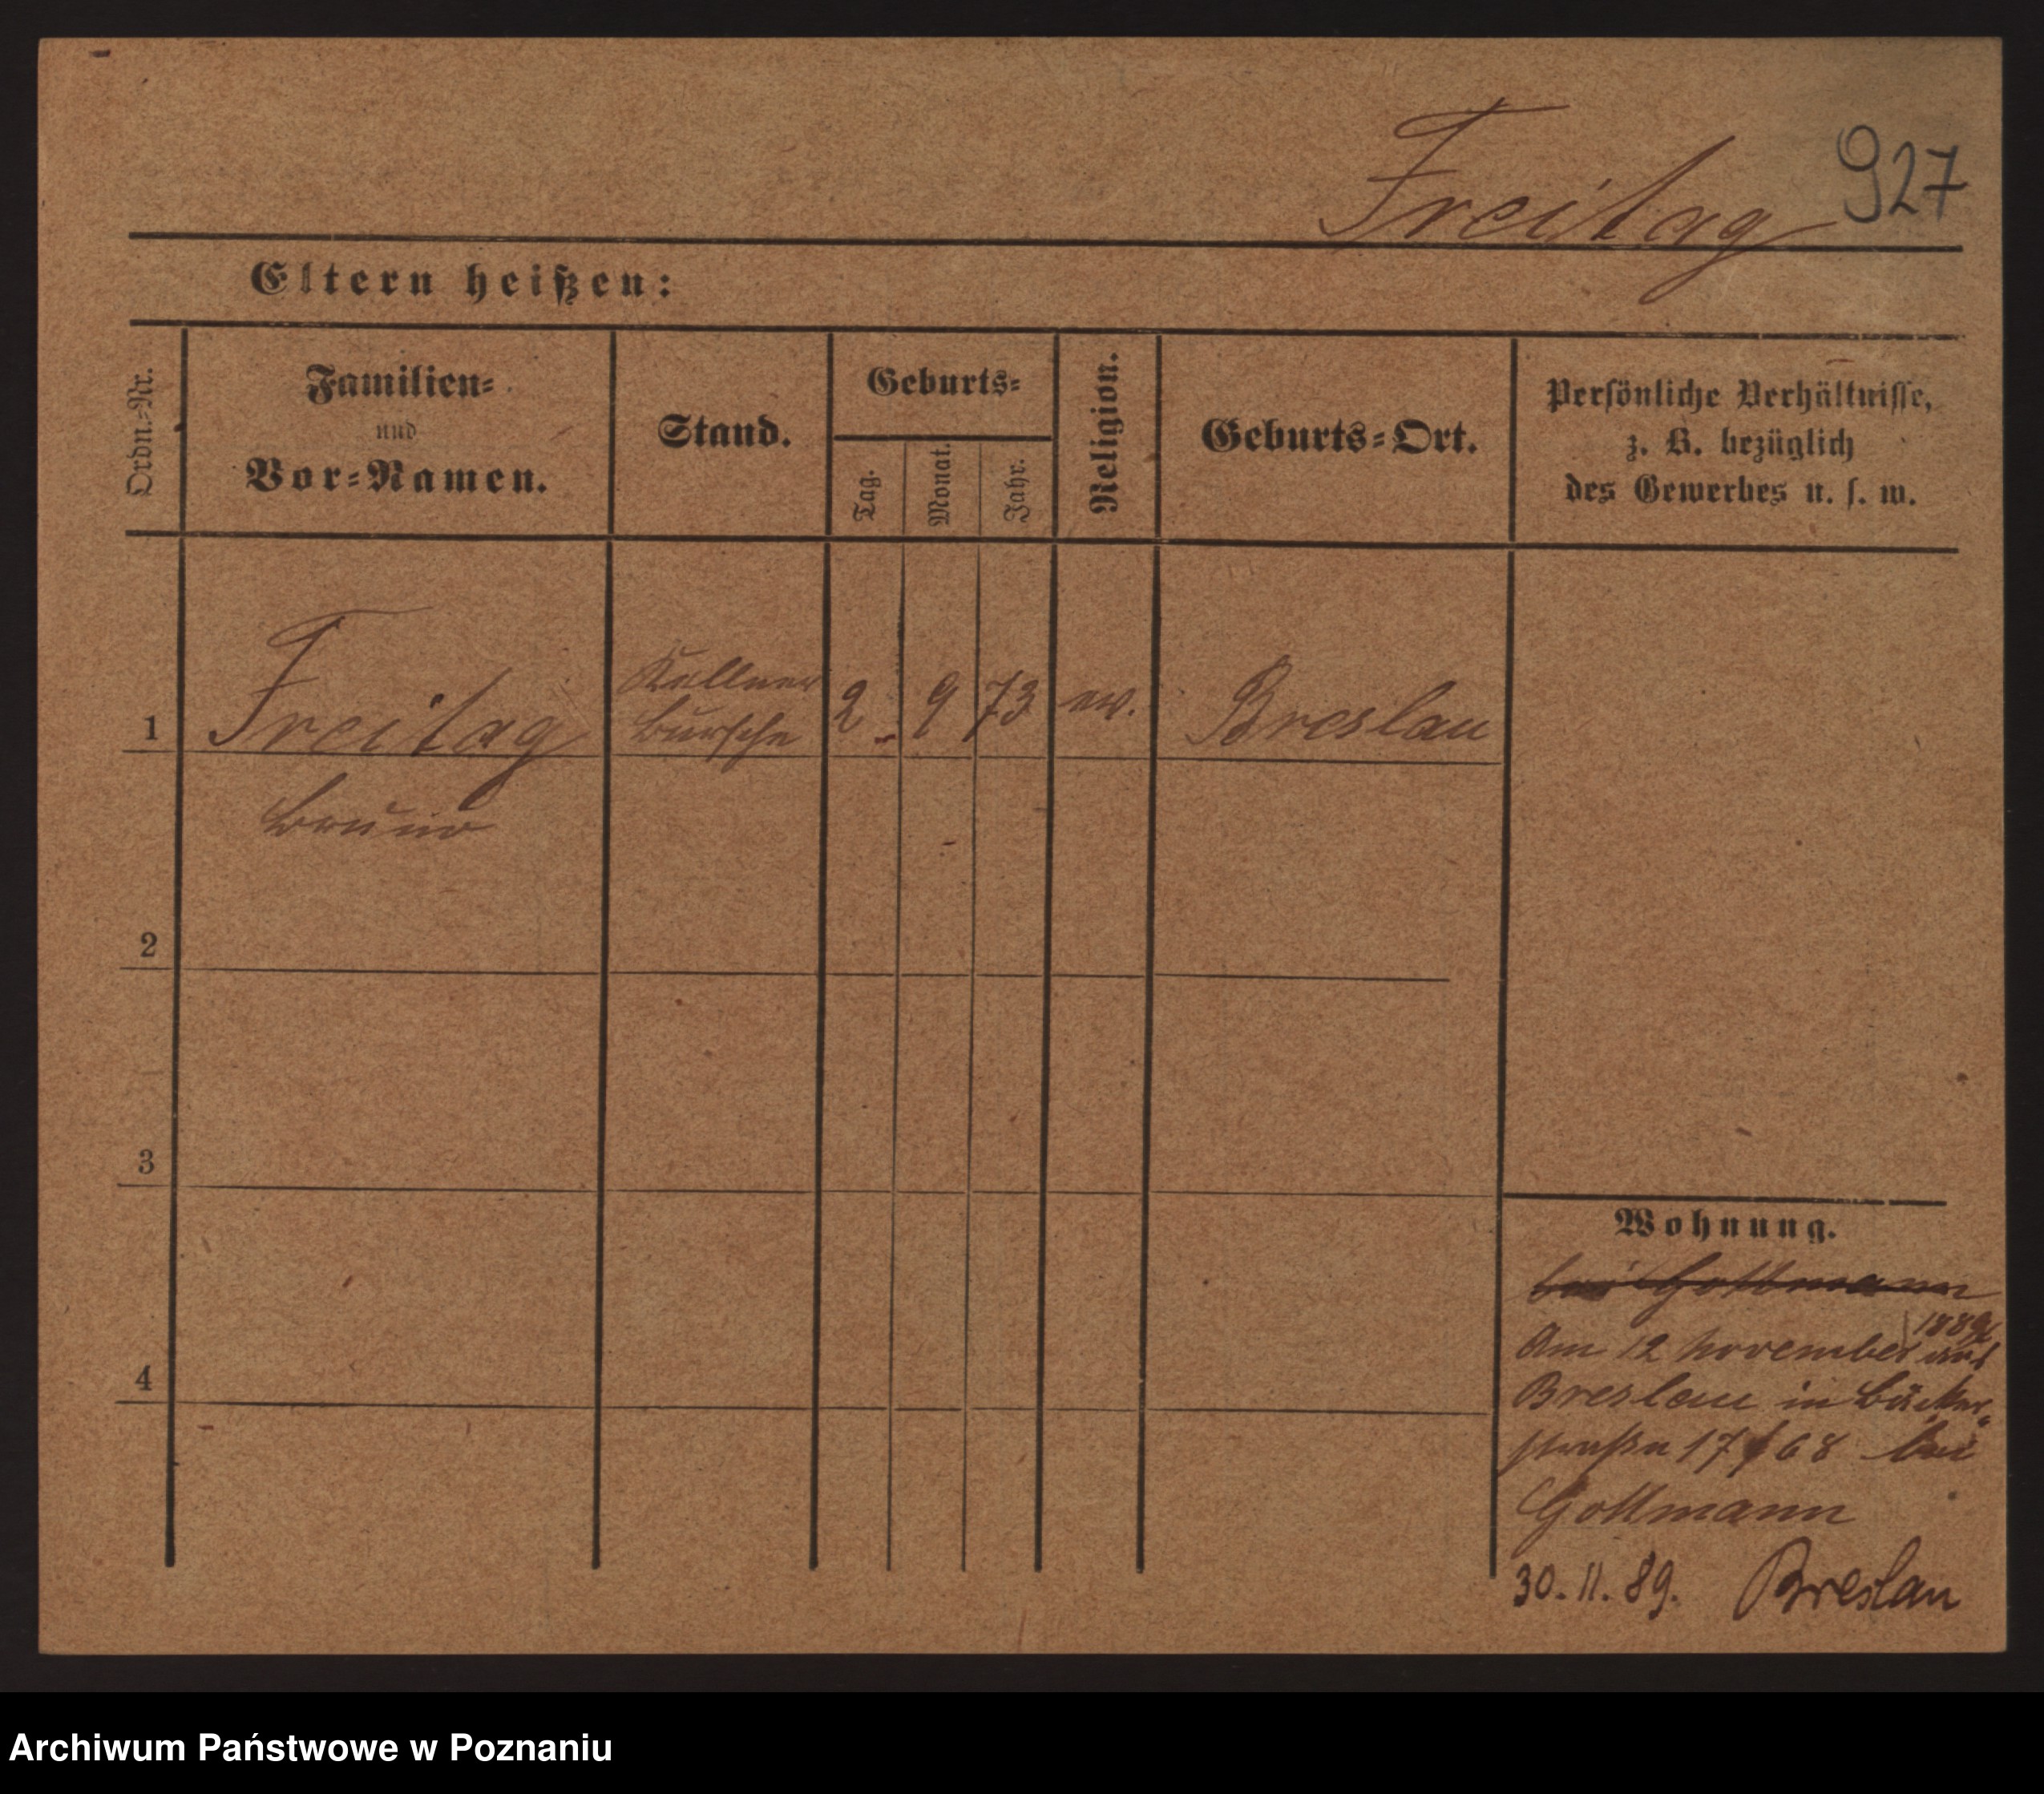 Freitag 927
Eltern heißen:
Ordn.-Nr.
Familien-
und
Vor-Namen.
Stand.
Geburts-
Tag.
Monat.
Jahr.
Religion.
Geburts-Ort.
Persönliche Verhältnisse,
z. B. bezüglich
des Gewerbes u. s. w.
1 Freitag Kellner 2. 9 73 ev. Breslau
bursche
Bruno
2
3
4
Wohnung.
bei Gottmann
1889
Am 12 November aus
Breslau in Bäcker-
straße 17/68 bei
Gottmann
30.11.89. Breslau
Archiwum Państwowe w Poznaniu